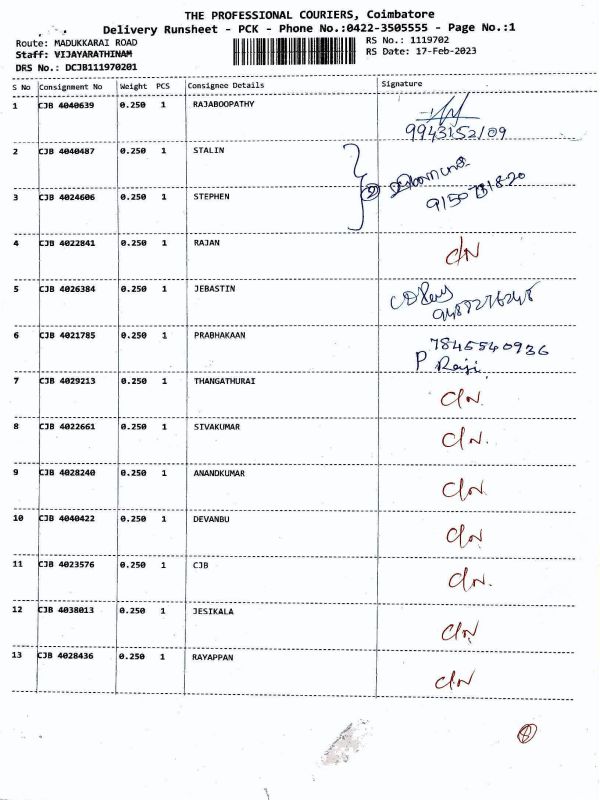 THE PROFESSIONAL COURIERS, Coimbatore
Delivery Runsheet - PCK - Phone No.:0422-3505555 - Page No.:1
Route: MADUKKARAI ROAD
RS No.: 1119702
Staff: VIJAYARATHINAM
RS Date: 17-Feb-2023
DRS No.: DCJB111970201
S No Consignment No Weight PCS Consignee Details Signature
1 CJB 4040639 0.250 1 RAJABOOPATHY
9943152109
2 CJB 4040487 0.250 1 STALIN
3 CJB 4024606 0.250 1 STEPHEN
4 CJB 4022841 0.250 1 RAJAN C/N
5 CJB 4026384 0.250 1 JEBASTIN
6 CJB 4021785 0.250 1 PRABHAKAAN 7845540936
P Raji
7 CJB 4029213 0.250 1 THANGATHURAI C/N.
8 CJB 4022661 0.250 1 SIVAKUMAR C/N.
9 CJB 4028240 0.250 1 ANANDKUMAR C/N.
10 CJB 4040422 0.250 1 DEVANBU C/N
11 CJB 4023576 0.250 1 CJB C/N.
12 CJB 4038013 0.250 1 JESIKALA C/N
13 CJB 4028436 0.250 1 RAYAPPAN C/N
8